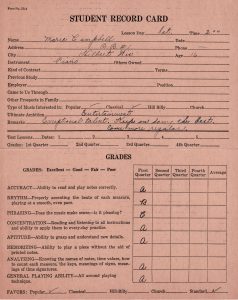 Form No. 3314
STUDENT RECORD CARD
Lesson Day Sat. Time 2 00
Name Marie Campbell
Address Phone
City Wis Age
Instrument Piano Others Owned
Kind of Contract Terms
Previous Study
Employer Position
Came to Us Through
Other Prospects in Family
Type of Music Interested in: Popular ✓ Classical Hill Billy Church
Ultimate Ambition Entertainment
Remarks: Exceptional talent. Keeps on same, the best.
regular.
Test Lessons: Dates: 1 2 3 4 5 6
Grades: 1st Quarter 2nd Quarter 3rd Quarter 4th Quarter
GRADES
GRADES: Excellent — Good — Fair — Poor
First Quarter Second Quarter Third Quarter Fourth Quarter Average
ACCURACY—Ability to read and play notes correctly. A
RHYTHM—Properly accenting the beats of each measure, at a smooth, even pace. B
PHRASING—Does the music make sense—is it pleasing? B
CONCENTRATION—Reading and listening to all instructions and ability to apply them to everyday practice. A
APTITUDE—Ability to grasp and understand new details. A
MEMORIZING—Ability to play a piece without the aid of printed notes. A
ANALYZING—Knowing the names of notes, time values, how to count each measure, the keys, meanings of signs, meanings of time signatures. A
GENERAL PLAYING ABILITY—All around playing technique. A
FAVORS: Popular ✓ Classical Hill Billy Church Standard ✓